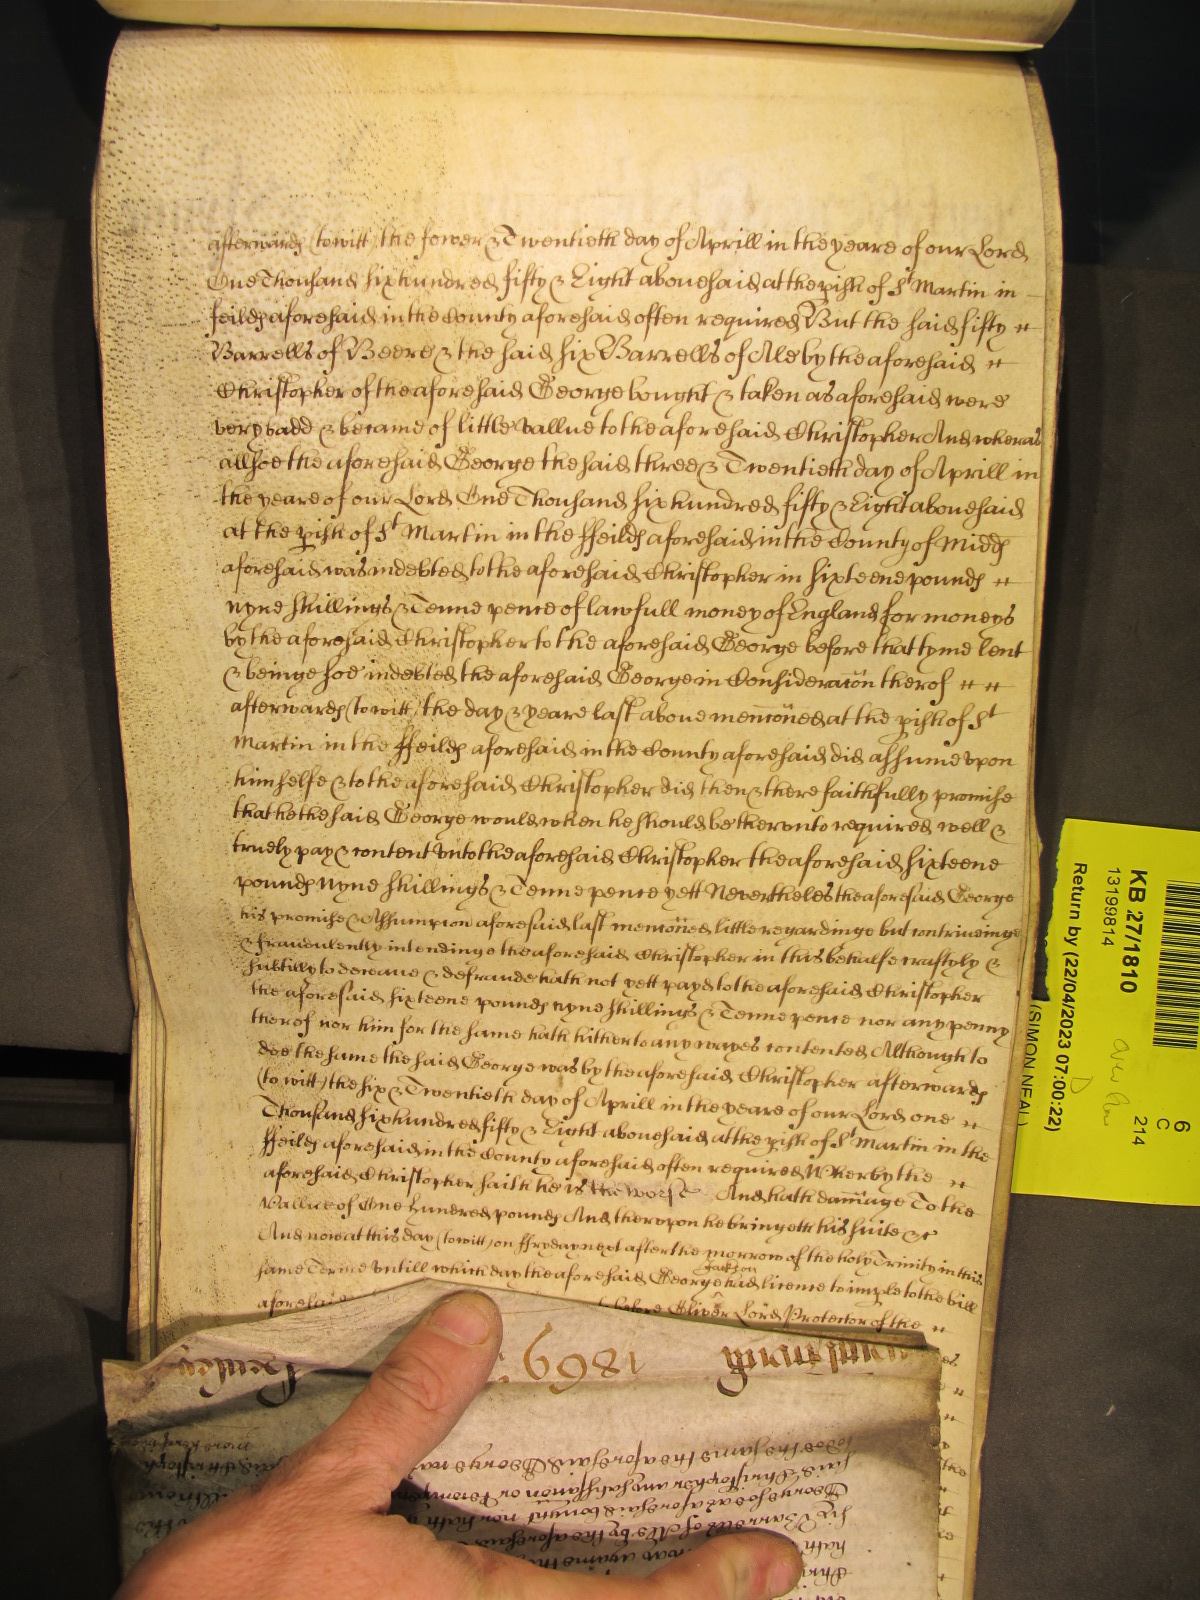 afterwards (to witt) the fower & Twentieth day of Aprill in the yeare of our Lord
One Thousand six hundred fifty & Eight abovesaid at the pish of St Martin in
feilds aforesaid in the County aforesaid often required But the said fifty
Barrells of Beere & the said six Barrells of Ale by the aforesaid
Christopher of the aforesaid George bought & taken as aforesaid were
very badd & became of little vallue to the aforesaid Christopher And wheras
allsoe the aforesaid George the said three & Twentieth day of Aprill in
the yeare of our Lord One Thousand six hundred fifty & Eight abovesaid
at the pish of St Martin in the ffeilds aforesaid in the County of Midds
aforesaid was indebted to the aforesaid Christopher in sixteene pounds
nyne shillings & Tenne pence of lawfull money of England for moneys
by the aforesaid Christopher to the aforesaid George before that tyme lent
& beinge soe indebted the aforesaid George in Consideracon therof
afterwards (to witt) the day & yeare last above menconed at the pish of St
Martin in the ffeilds aforesaid in the County aforesaid did assume upon
himselfe & to the aforesaid Christopher did then & there faithfully promise
that he the said George would when he should be therunto required well &
truely pay & content unto the aforesaid Christopher the aforesaid sixteene
pounds nyne shillings & Tenne pence yett Nevertheles the aforesaid George
his promise & Assumpcon aforesaid last menconed little regardinge but contriveinge
& fraudulently intendinge the aforesaid Christopher in this behalfe craftyly &
subtilly to deceave & defraude hath not yett payd to the aforesaid Christopher
the aforesaid sixteene pounds nyne shillings & Tenne pence nor any penny
therof nor him for the same hath hitherto any wayes contented Although to
doe the same the said George was by the aforesaid Christopher afterwards
(to witt) the six & Twentieth day of Aprill in the yeare of our Lord one
Thousand six hundred fifty & Eight abovesaid at the pish of St Martin in the
ffeilds aforesaid in the County aforesaid often required Wherby the
aforesaid Christopher saith he is the worse And hath damage To the
vallue of One hundred pounds And therupon he bringeth his suite &c
And now at this day (to witt) on ffryday next after the morrow of the holy Trinity in this
same Terme untill which day the aforesaid George Jackson had licence to imple to the bill
aforesaid before Oliver Lord Protector of the
1869
doe the same the aforesaid George was
said Christopher any satisfaccon or recompence
George soe as aforesaid bought nor hath
six Barrells of Ale by the aforesaid
KB 27/1810
13199814
Return by (22/04/2023 07:00:22)
(SIMON NEAL)
6
C
214